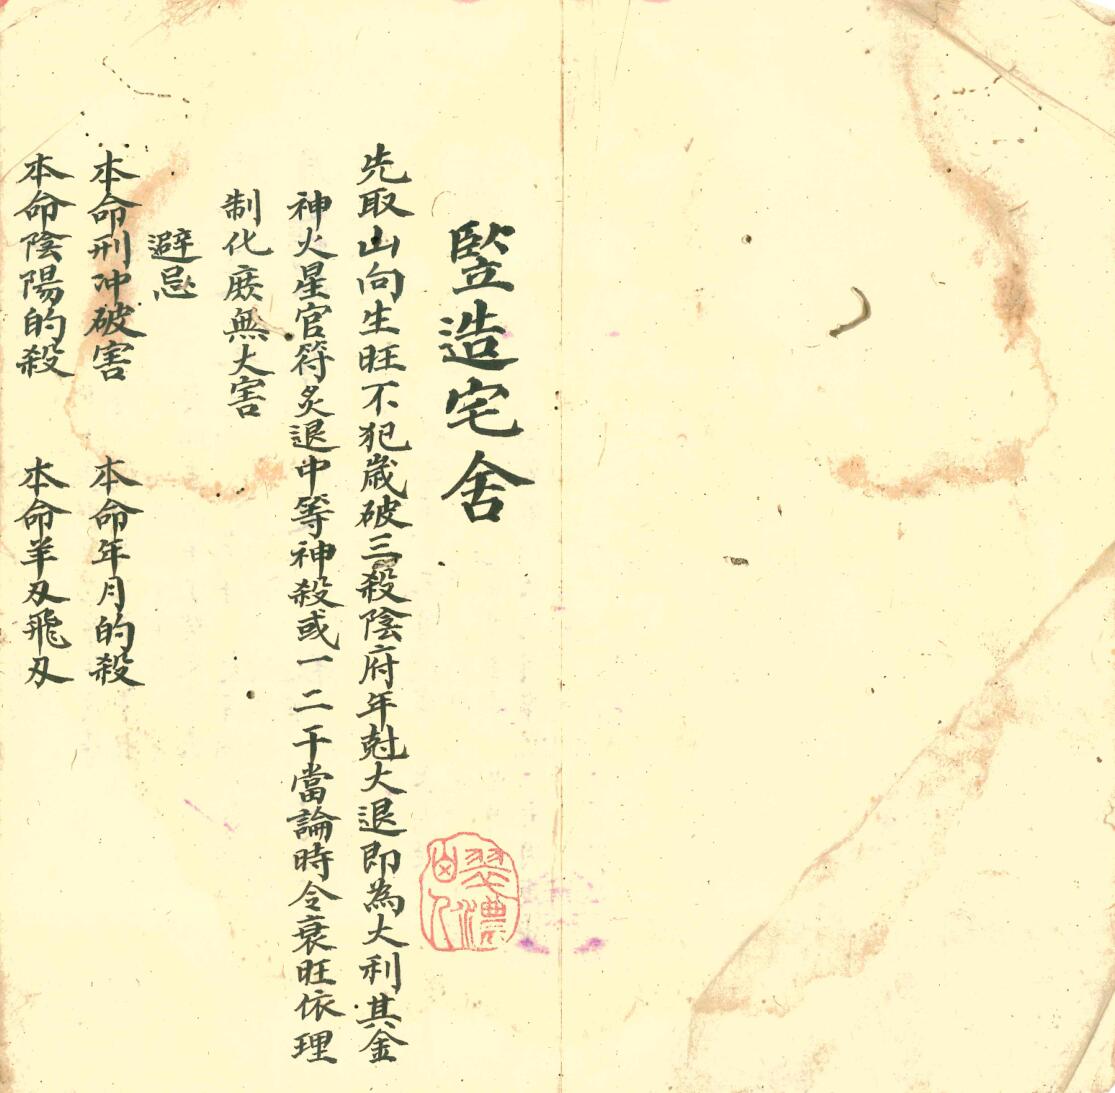 竪造宅舍
先取山向生旺不犯嵗破三殺陰府年尅大退即為大利其金
神火星官符炙退中等神殺或一二干當論時令衰旺依理
制化庶無大害
避忌
本命刑冲破害　本命年月的殺
本命陰陽的殺　本命羊刃飛刃